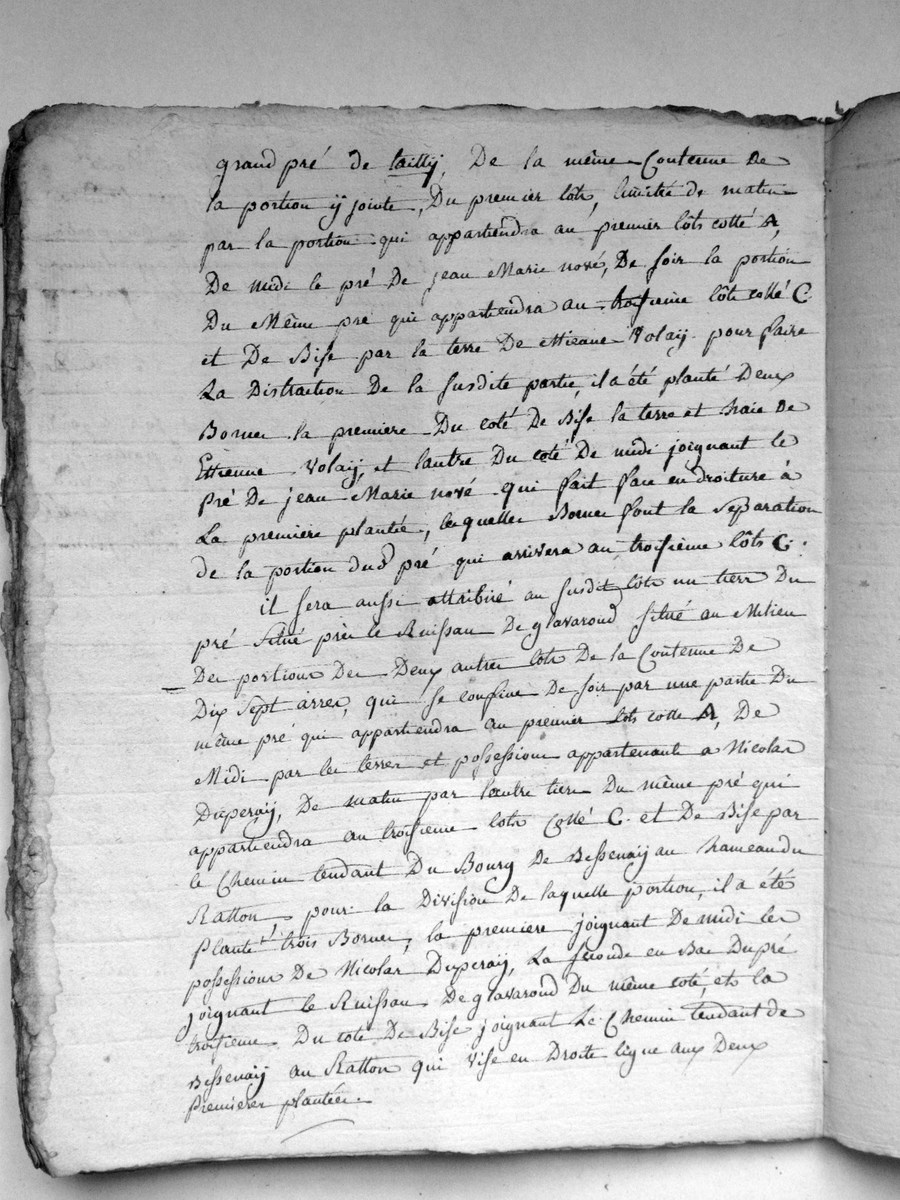 grand pré de tailly, De la même Contenue de
la portion ÿ jointe, Du premier lôts, limitté de matin
par la portion qui appartiendra au premier lôts cotté A,
De midi le pré De jean Marie nové, De soir la portion
Du Même pré qui appartiendra au troisieme lôts cotté C
et De Bise par la terre De ettienne Volaÿ. pour faire
La Distraction De la susdite partie, il a été planté Deux
Bornes la premiere Du coté De Bise la terre et haie de
Ettienne Volaÿ, et lautre Du coté De midi joignant le
Pré De jean Marie nové qui fait face en droiture à
La première plantée, lesquelles Bornes font la Séparation
de la portion dud pré qui arrivera au troisième lôts C.
il sera aussi attribué au susdit lôts un tiers Du
pré situé près le Ruissau De glavaroud situé au Milieu
Des portions Des Deux autres lots De la Contenue De
Dix Sept arres, qui se confine De soir par une partie Du
même pré qui appartiendra au premier lots cotté A, De
Midi par les terres et possessions appartenante a Nicolas
Duperaÿ, De matin par lautre tiers Du même pré qui
appartiendra au troisieme lots Cotté C. et De Bise par
le Chemin tendant Du Bourg De Bessenaÿ au hameau du
Ratton pour la Division De laquelle portion, il a été
Planté trois Bornes, la premiere joignant De midi les
possessions De Nicolas Duperaÿ, La seconde en Bas Du pré
joignant le Ruissau De glavaroud Du même coté, et la
troisieme Du coté De Bise joignant Le Chemin tendant de
Bessenaÿ au Ratton qui vise en Droite ligne aux Deux
Premieres plantées.